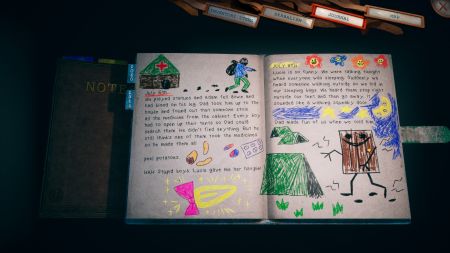 INVENTORY ITEMS
HERBARIUM
JOURNAL
MAP
NOTE
JULY 6TH
We played statues and Adam fell down and
had blood on his leg. Dad took him up to the
house and found out that someone stole
all the medicines from the cabinet. Every boy
had to open up their tents so Dad could
search them. He didn't find anything. But he
still thinks one of them took the medicines
so he made them all
peel potatoes.
HAH! Stupid boys. Lucie gave me her hairpin!
JULY 8TH
Lucie is so funny. We were talking tonight
when everyone was sleeping. Suddenly we
heard someone walking outside so we hid in
our sleeping bags. We heard them stop right
outside our tent and then go away. It
sounded like a walking squeaky door.
Dad made fun of us when we told him.